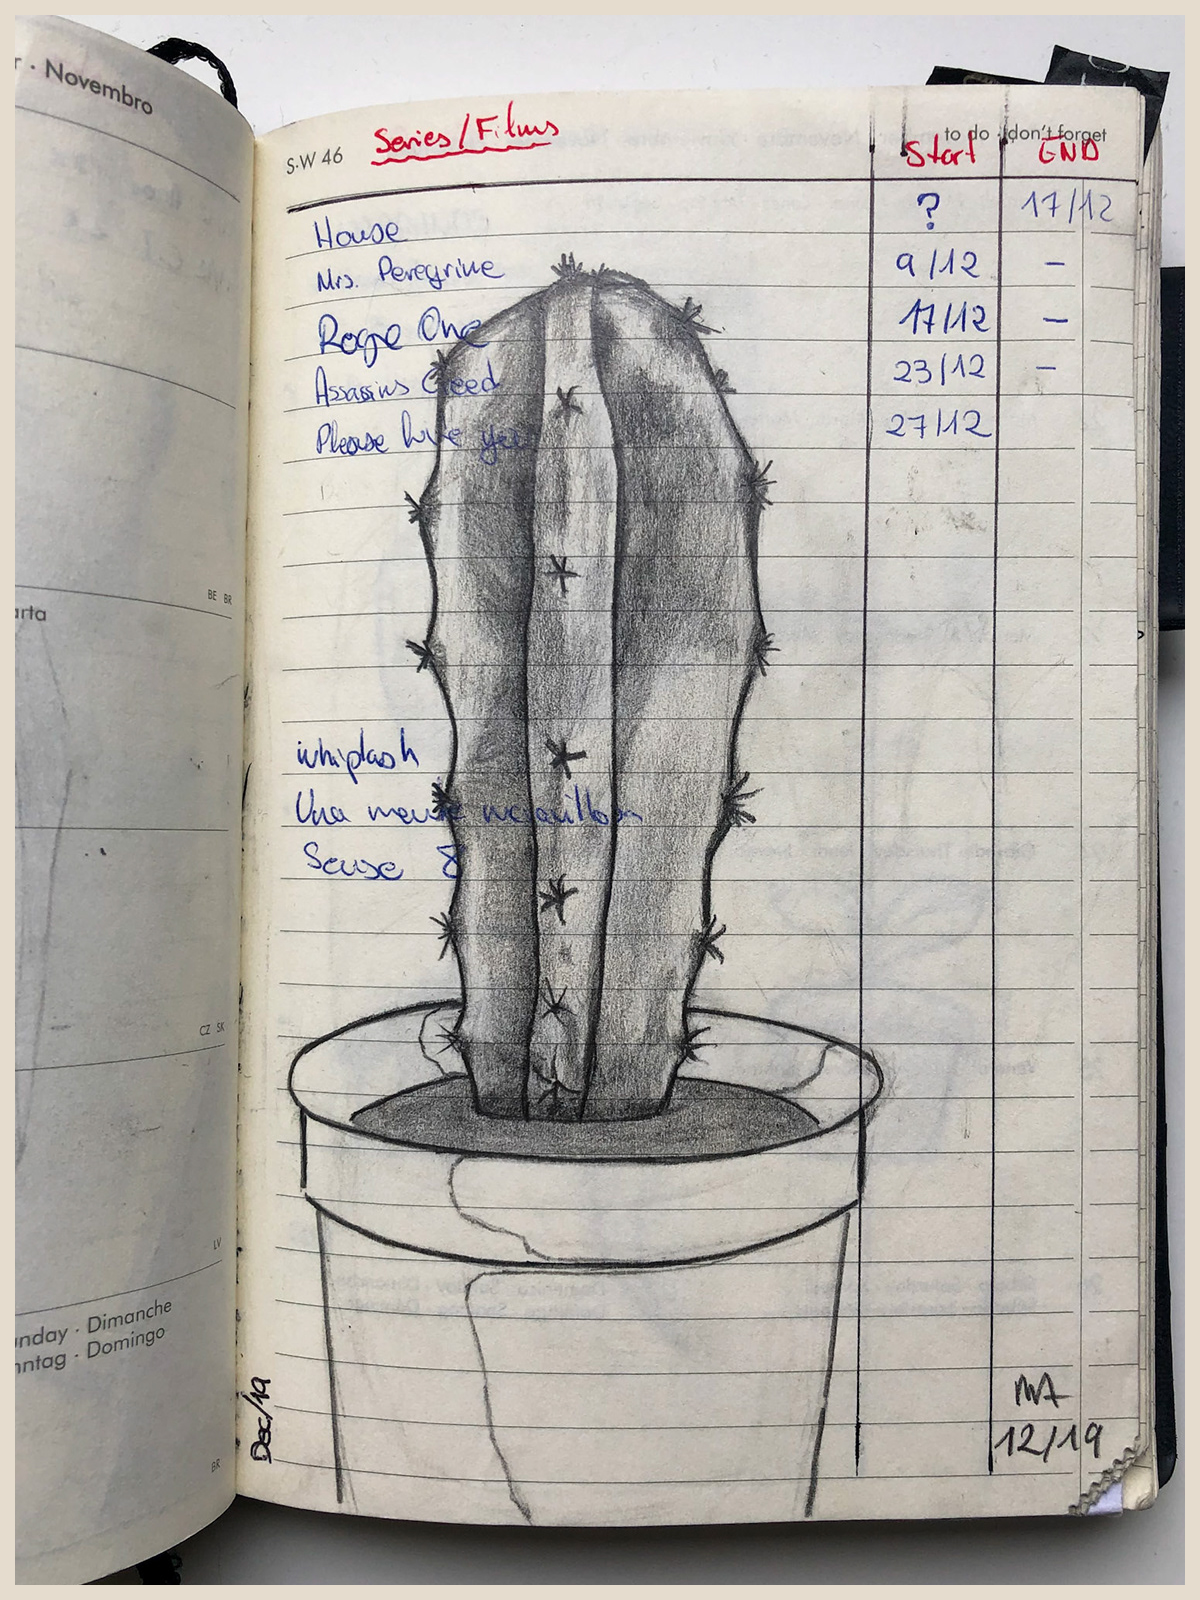 r · Novembro
arta
BE BR
CZ SK
LV
unday · Dimanche
nntag · Domingo
BR
S·W 46
Series/Films
to do · don't forget
Start
END
House ? 17/12
Mrs. Peregrine 9/12 –
Rogue One 17/12 –
Assassins Creed 23/12 –
Please love you 27/12
whiplash
Una mente maravillosa
Sense 8
Dec/19
MA
12/19